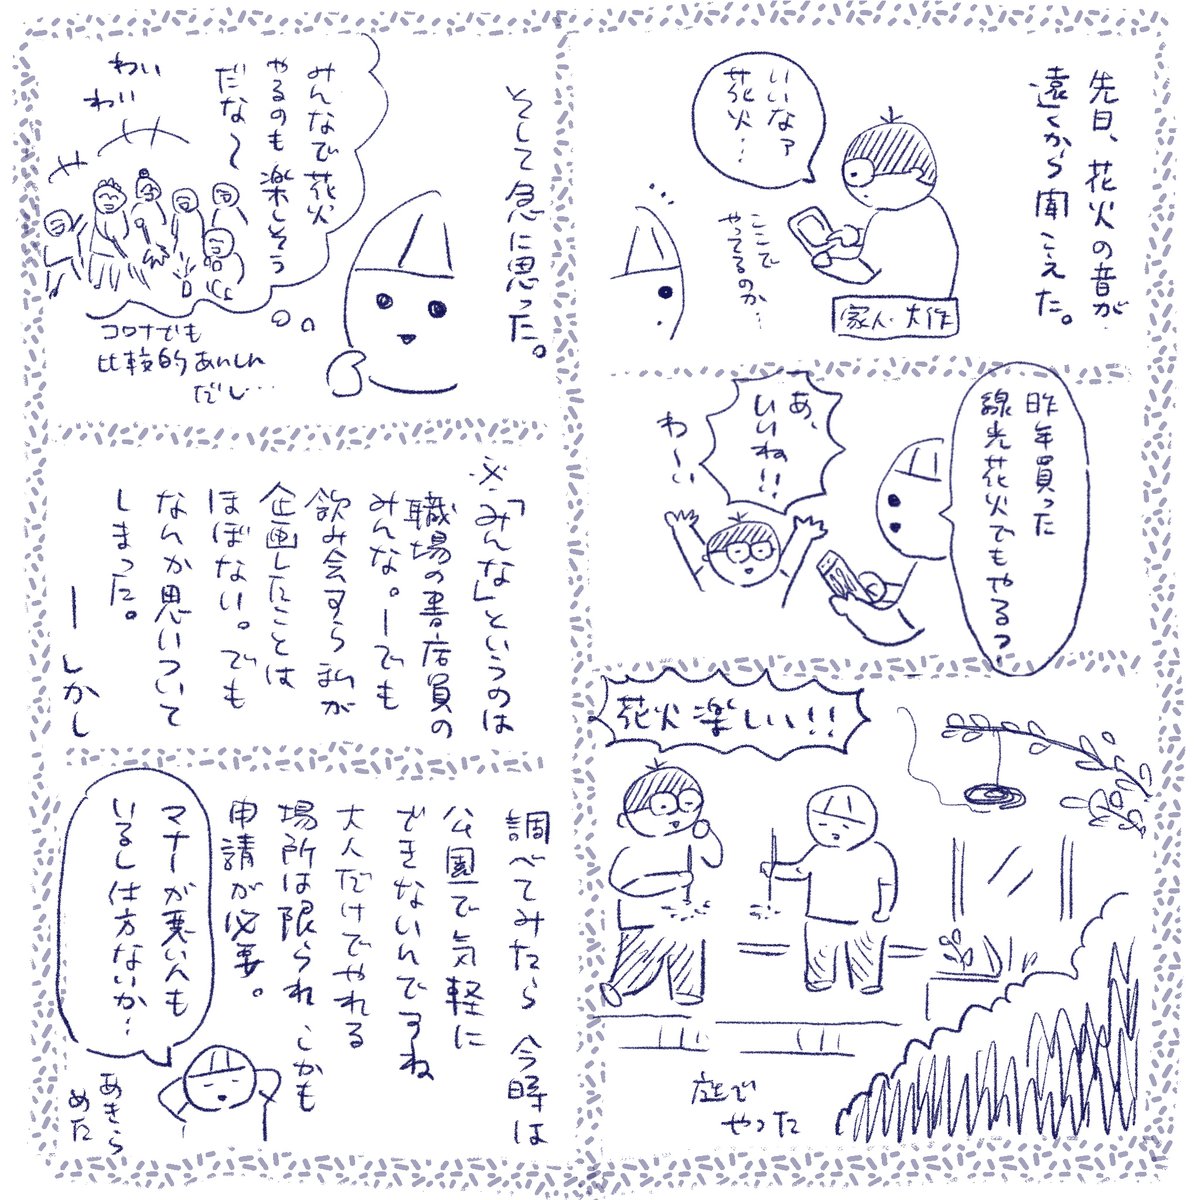 先日、花火の音が
遠くから聞こえた。
いいなァ
花火…
ここで
やってるのか…
家人・大作
昨年買った
線光花火でもやるっ
あ、
いいね!!
わ〜い
花火楽しい!!
庭で
やった
そして急に思った。
みんなで花火
やるのも楽しそう
だな〜
わい
わい
コロナでも
比較的あんしん
だし…
※「みんな」というのは
職場の書店員の
みんな。ーでも
飲み会すら私が
企画したことは
ほぼない。でも
なんか思いついて
しまった。
ーしかし
調べてみたら今時は
公園で気軽に
できないんですね
大人だけでやれる
場所は限られしかも
申請が必要。
マナーが悪い人も
いるし仕方ないか…
あきら
めた